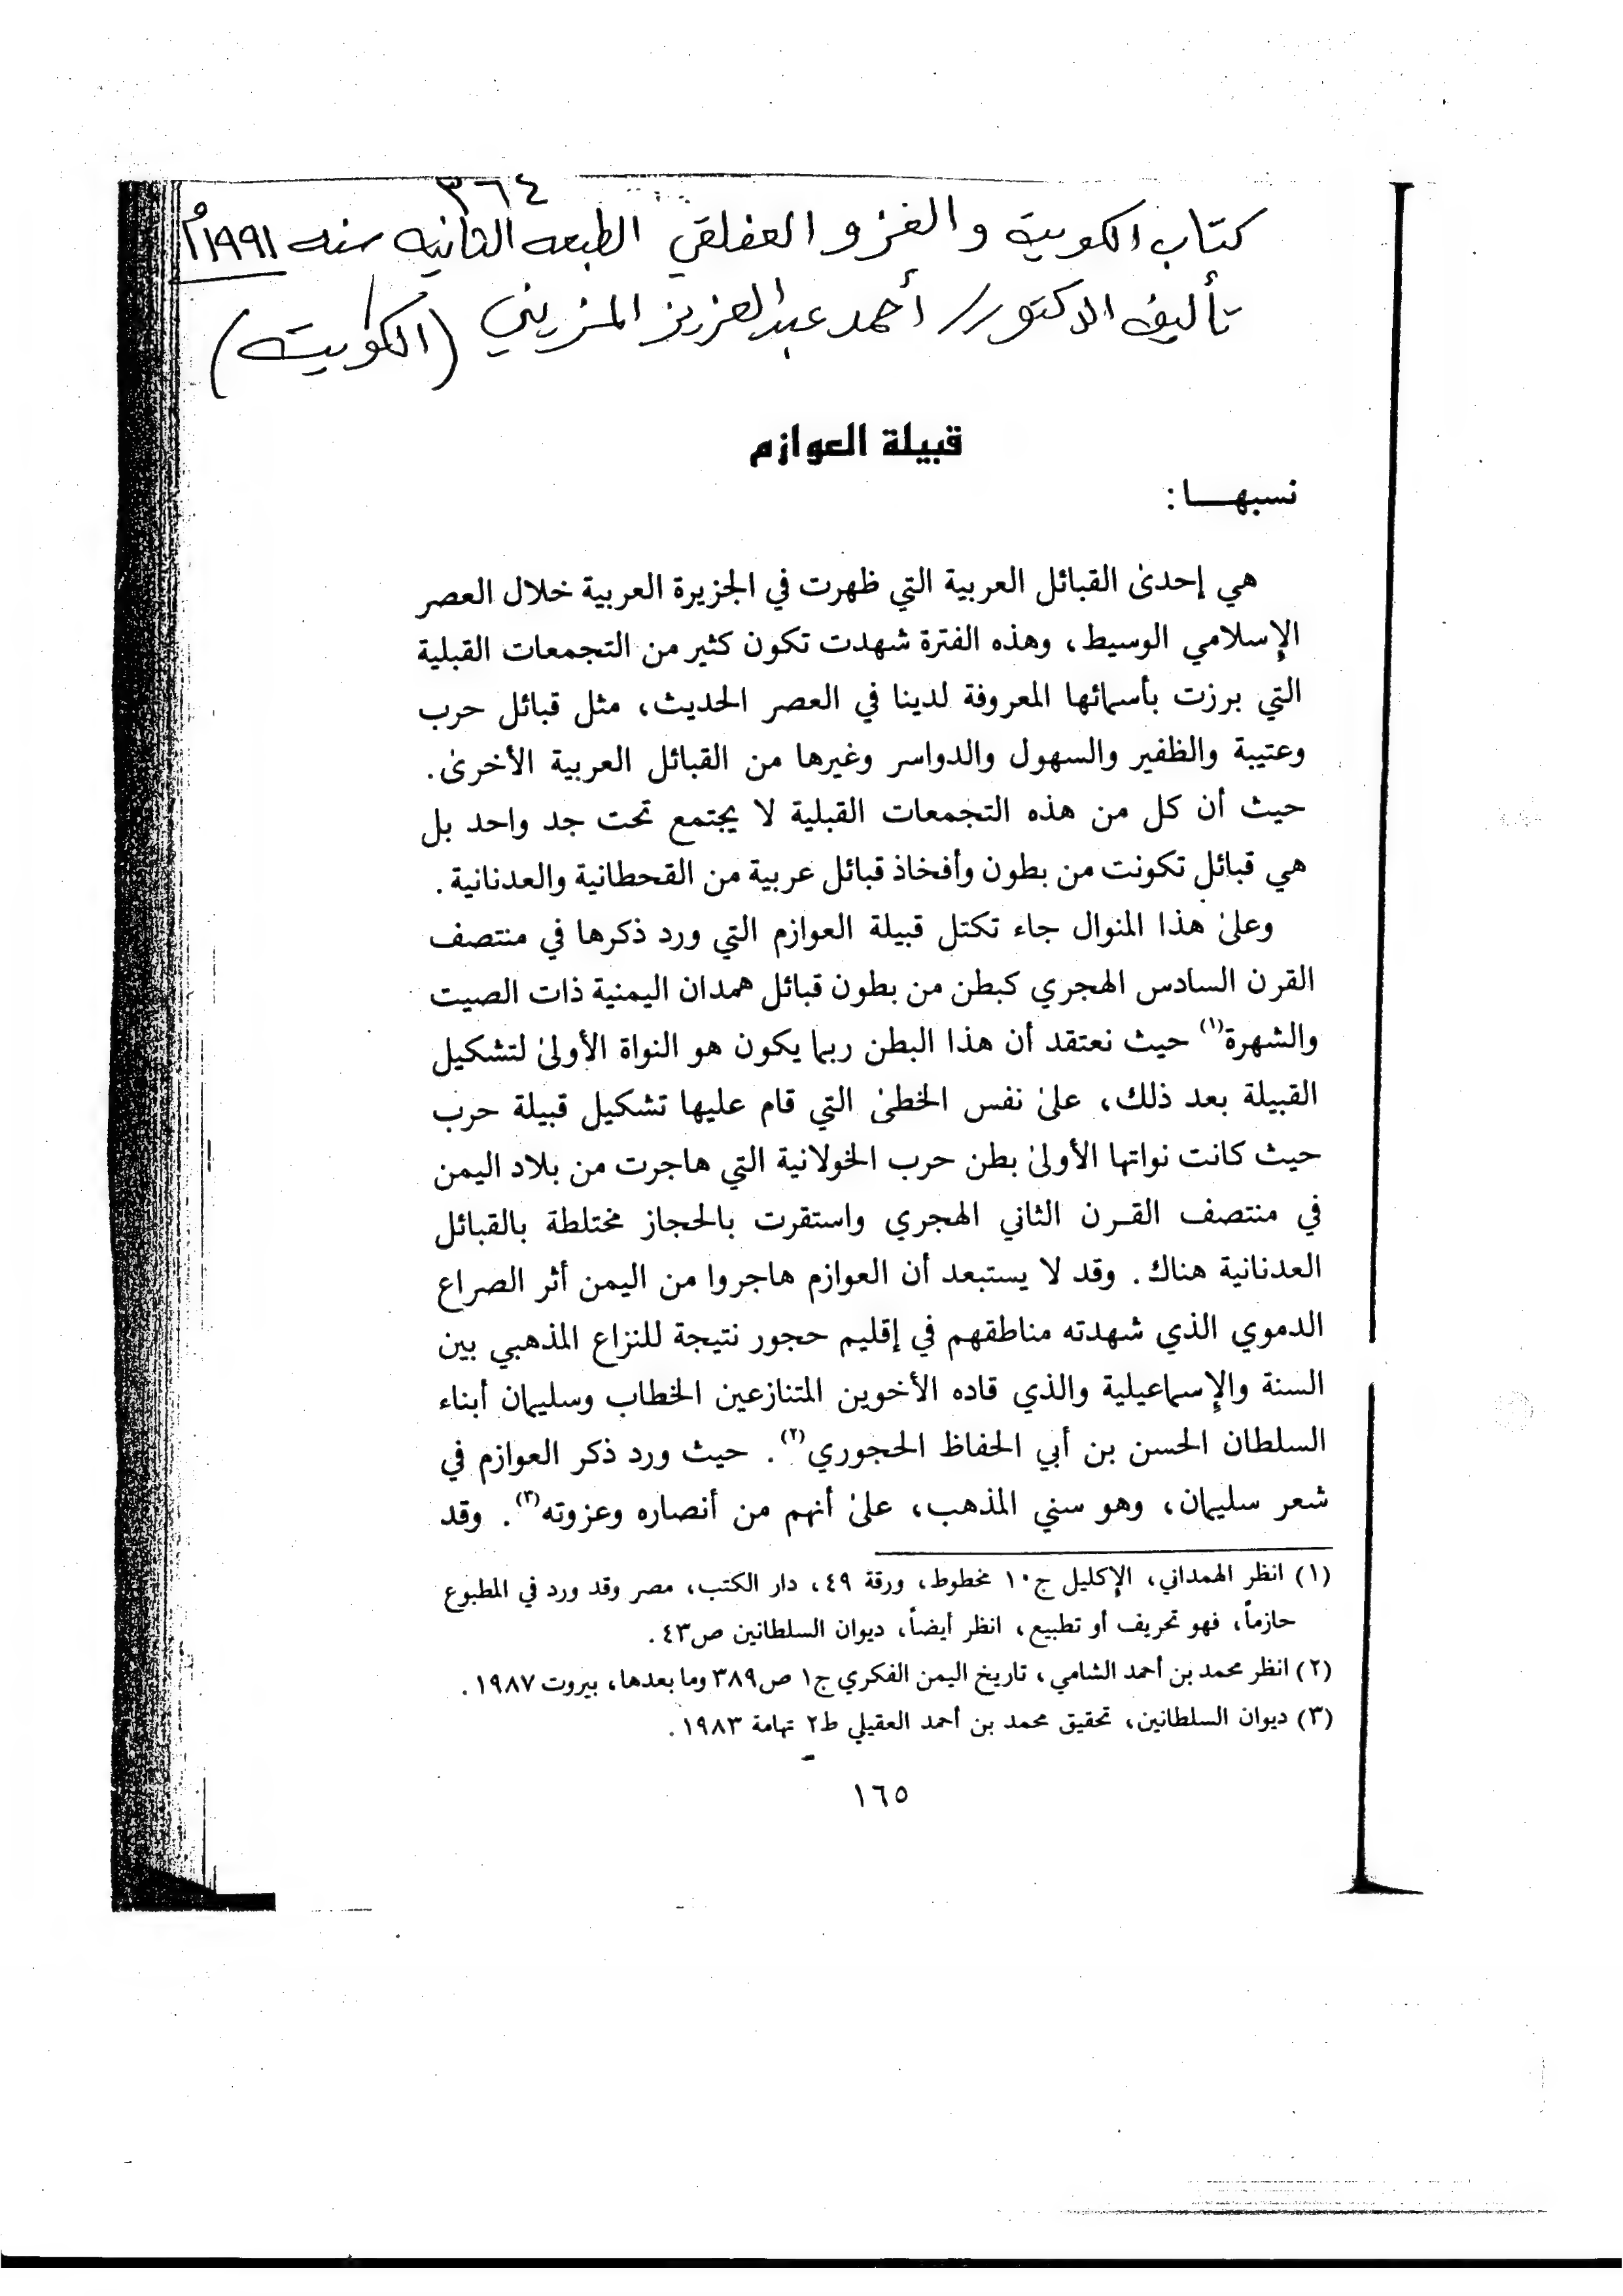 ٣٦٤
كتاب الكويت والغزو العفلقي الطبعه الثانيه سنه ١٩٩١م
تأليف الدكتور / أحمد عبدالعزيز المزيني (الكويت)
قبيلة العوازم
نسبهـــا :
هي إحدىٰ القبائل العربية التي ظهرت في الجزيرة العربية خلال العصر
الإسلامي الوسيط، وهذه الفترة شهدت تكون كثير من التجمعات القبلية
التي برزت بأسمائها المعروفة لدينا في العصر الحديث، مثل قبائل حرب
وعتيبة والظفير والسهول والدواسر وغيرها من القبائل العربية الأخرىٰ.
حيث أن كل من هذه التجمعات القبلية لا يجتمع تحت جد واحد بل
هي قبائل تكونت من بطون وأفخاذ قبائل عربية من القحطانية والعدنانية.
وعلىٰ هذا المنوال جاء تكتل قبيلة العوازم التي ورد ذكرها في منتصف
القرن السادس الهجري كبطن من بطون قبائل همدان اليمنية ذات الصيت
والشهرة(١) حيث نعتقد أن هذا البطن ربما يكون هو النواة الأولىٰ لتشكيل
القبيلة بعد ذلك، علىٰ نفس الخطىٰ التي قام عليها تشكيل قبيلة حرب
حيث كانت نواتها الأولىٰ بطن حرب الخولانية التي هاجرت من بلاد اليمن
في منتصف القـرن الثاني الهجري واستقرت بالحجاز مختلطة بالقبائل
العدنانية هناك. وقد لا يستبعد أن العوازم هاجروا من اليمن أثر الصراع
الدموي الذي شهدته مناطقهم في إقليم حجور نتيجة للنزاع المذهبي بين
السنة والإسماعيلية والذي قاده الأخوين المتنازعين الخطاب وسليمان أبناء
السلطان الحسن بن أبي الحفاظ الحجوري(٢). حيث ورد ذكر العوازم في
شعر سليمان، وهو سني المذهب، علىٰ أنهم من أنصاره وعزوته(٣). وقد
(١) انظر الهمداني، الإكليل ج١٠ مخطوط، ورقة ٤٩، دار الكتب، مصر وقد ورد في المطبوع
حازماً، فهو تحريف أو تطبيع، انظر أيضاً، ديوان السلطانين ص٤٣.
(٢) انظر محمد بن أحمد الشامي، تاريخ اليمن الفكري ج١ ص٣٨٩ وما بعدها، بيروت ١٩٨٧.
(٣) ديوان السلطانين، تحقيق محمد بن أحمد العقيلي ط٢ تهامة ١٩٨٣.
١٦٥